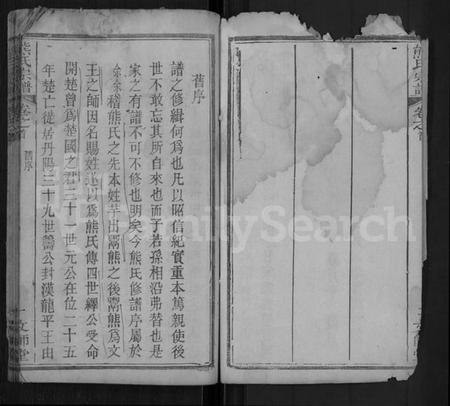 熊氏宗譜
卷之首
舊序
舊序
譜之修緝何為也凡以昭信紀實重本篤親使後
世不敢忘其所自來也而子若孫相沿弗替也是
家之有譜不可不修也明矣今熊氏修譜序屬於
余余稽熊氏之先本姓芈出鬻熊之後鬻熊爲文
王之師因名賜姓遂以爲熊氏傳四世繹公受命
開楚曾爲楚國之君三十一世元公在位二十五
年楚亡徙居丹陽三十九世籌公封漢龍平王由
熊氏宗譜
卷之首
FamilySearch